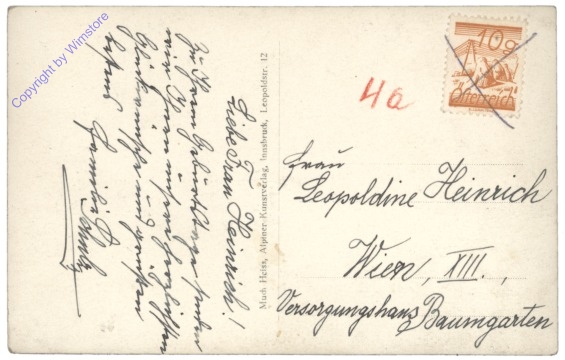 Copyright by Wimstore
Liebe Frau Heinrich!
Zu Ihrem Geburtstage senden
wir Ihnen unsere herzlichsten
Glückwünsche und
Familie
Much Heiss, Alpiner Kunstverlag, Innsbruck, Leopoldstr. 12
10g
Österreich
4a
Frau
Leopoldine Heinrich
Wien, XIII.,
Versorgungshaus Baumgarten